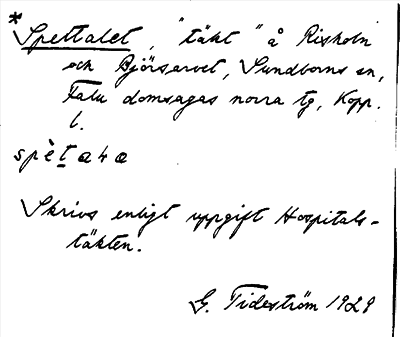 * Spettalet, "täkt" å Risholn
och Björsarvet, Sundborns sn,
Falu domsagas norra tg, Kopp.
l.
spèt̲aɬa
Skrivs enligt uppgift Hospitals-
täkten.
G. Tideström 1929